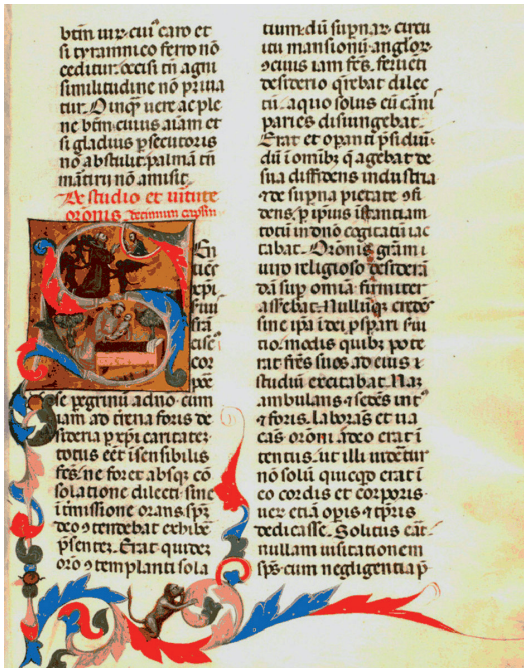 btm̄ uir. cui᷒ caro et
si tyrannico ferro nō
ceditur. occisi tn̄ agni
similitudine nō priua
tur. O inq̄ uere ac ple
ne btm̄ cuius aīam et
si gladius ꝑsecutoris
nō abstulit. palmā tn̄
martirii nō amisit
De studio et uirtute
orōnis decimum
Sen
tiēs
xp̄i
suu᷒
frā
cisc᷒
cor
poꝛe
se pegrinū a dn̄o. cum
iam ad trēna foris de
sideria ꝑ xp̄i caritatē
totus eēt ī sensibilis
fcs̄. ne foret absqꝫ cō
solatione dilecti sine
ītmissione orans. spm̄
deo ꝯtendebat exhibeꝰ
p̄sentez. Erat quidez
orō ꝯtemplanti sola
tium. dū suꝑnaꝝ circu
itu mansionū angloꝝ
ꝯciuis iam fcs̄. feruēti
desiderio q̄rebat dilec
tū. a quo solus eū caꝛnis
paries disiungebat.
Erat et oꝑanti p̄sidiū.
dū ī omīb᷒ q̄ agebat de
sua diffidens industria
⁊ de suꝑna pietate ꝯfi
dens. ꝑ ipius īstantiam
totū in dn̄o cogitatū iac
tabat. Orōnis grām
uiro religioso desidera
dā suꝑ omīa. firmiter
asserebat. Nullūqꝫ credēs
sine ipa ī dei ꝓspari ſui
tio. modis quibꝫ pote
rat frēs suos ad eius
studiū excitabat. Nam
ambulans ⁊ sedēs int᷒
⁊ foris. laborās et ua
cās orōni adeo erat ī
tentus. ut illi uideretur
nō solū quicqd̄ erat ī
eo cordis et corporis
ueꝝ etiā opis ⁊ tꝑris
dedicasse. Solitus erat
nullam uisitationem
spūs cum negligentia p̄